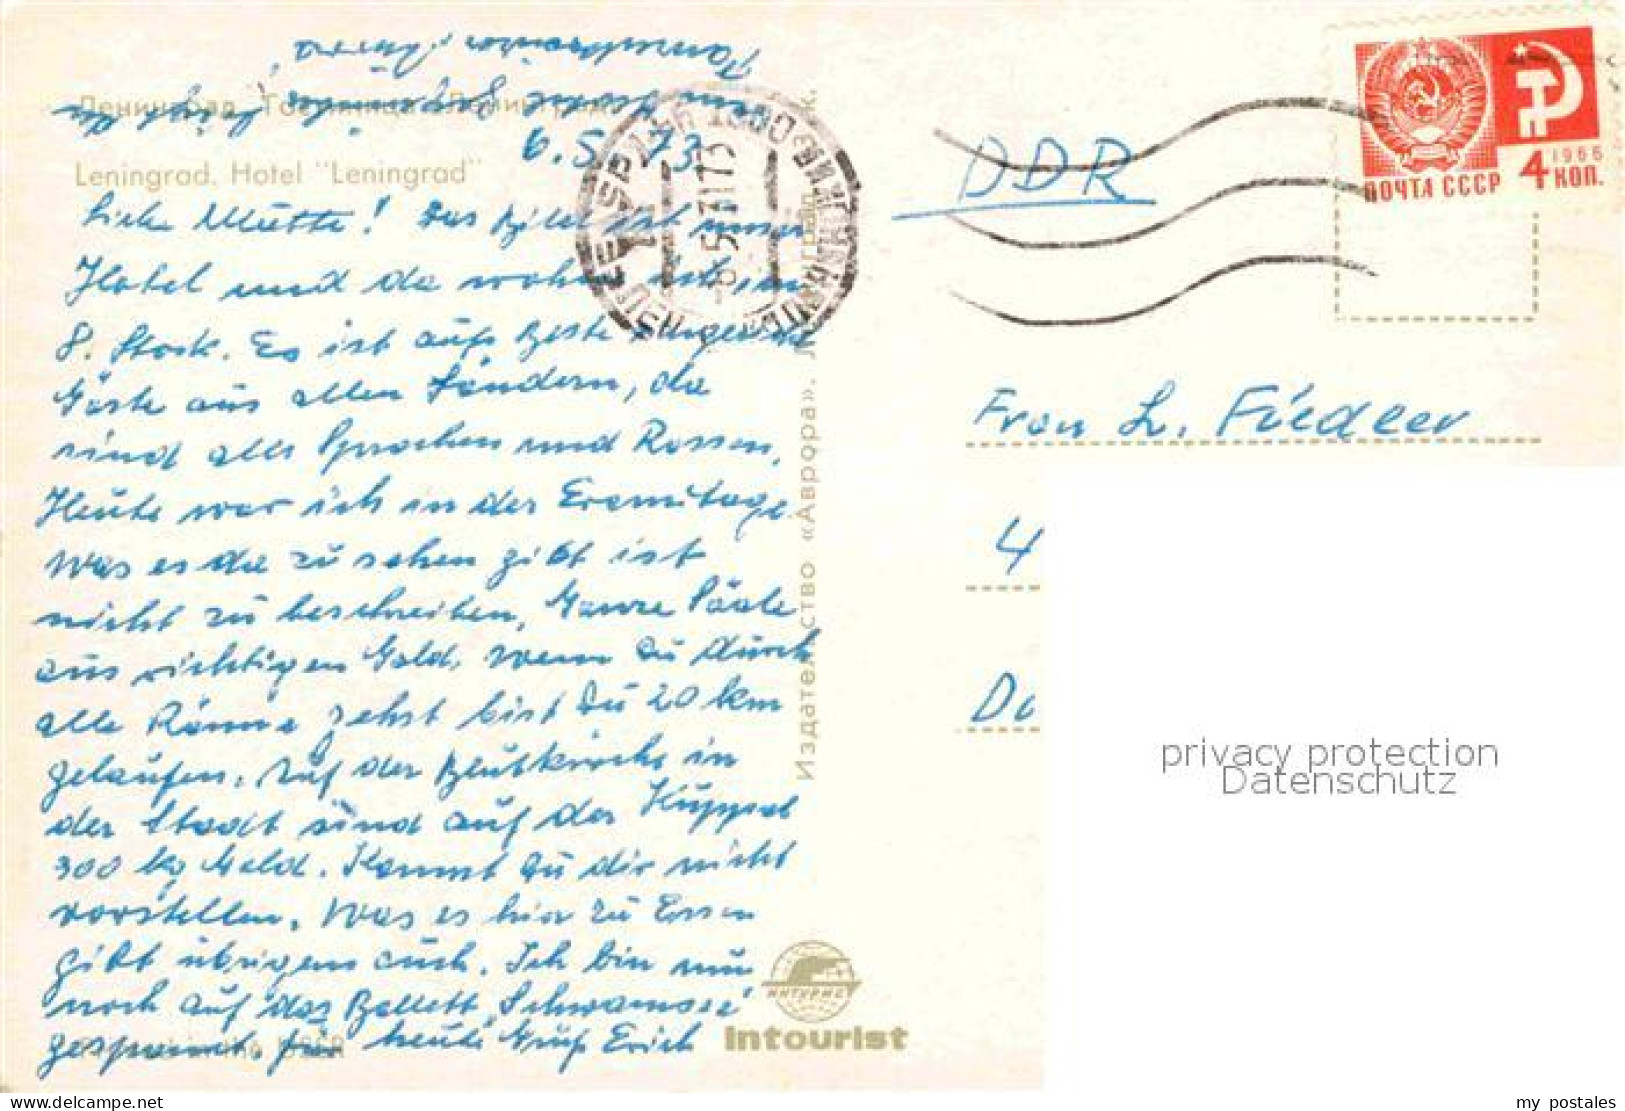 Ленинград. Гостиница "Ленинград"
6.5.73
Leningrad. Hotel "Leningrad"
Liebe Mutti! Das Bild ist unser
Hotel und da wohne ich im
8. Stock. Es ist aufs beste
Gäste aus allen Ländern, da
sind alle Sprachen und Rassen.
Heute war ich in der Eremitage.
Was es da zu sehen gibt ist
nicht zu beschreiben. Ganze Sääle
aus richtigen Gold. Wenn Du durch
alle Räume gehst bist Du 20 km
gelaufen. Auf der Blutkirche in
der Stadt sind auf der Kuppel
300 kg Gold. Kannst Du dir nicht
vorstellen. Was es hier zu Essen
gibt übrigens auch. Ich bin nun
noch auf das Ballett "Schwanensee"
gespannt. Für heute Gruß Erich
Издательство «Аврора».
ИНТУРИСТ
Intourist
DDR
ПОЧТА СССР 4 КОП.
1966
Frau L. Fiedler
4
Do
privacy protection
Datenschutz
my postales